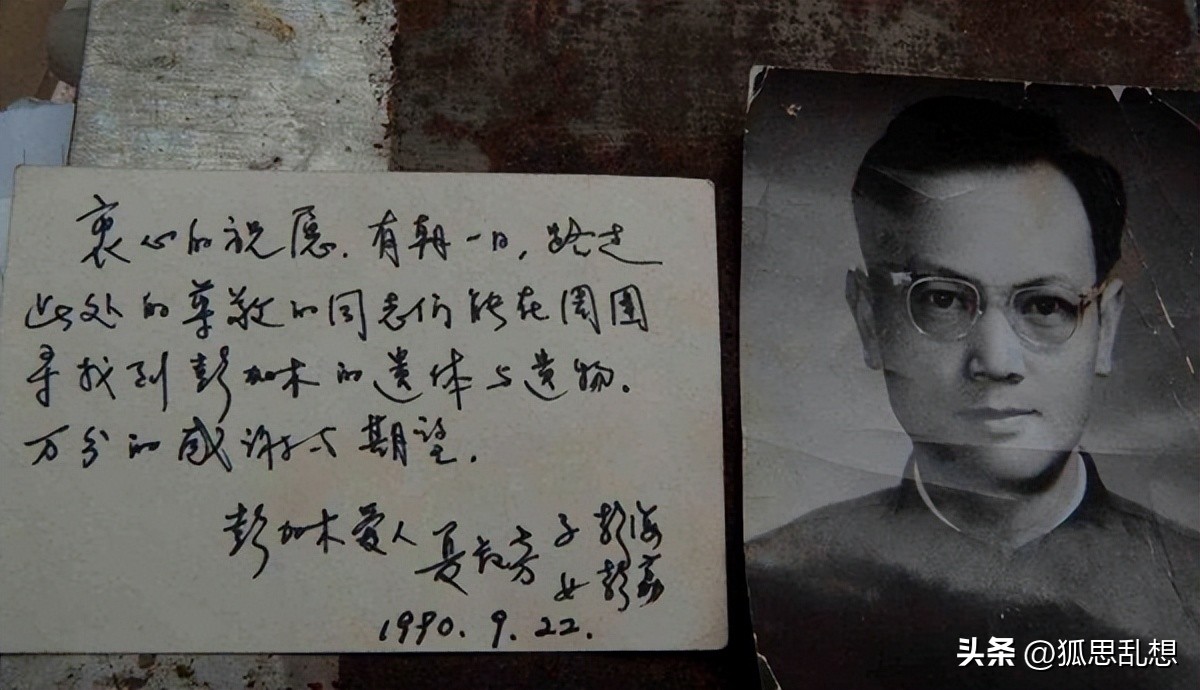 衷心的祝愿.有朝一日,路过
此处的尊敬的同志们能在周围
寻找到彭加木的遗体与遗物.
万分的感谢与期望.
彭加木爱人夏叔芳 子彭海
女彭荔
1990.9.22.
头条@狐思乱想